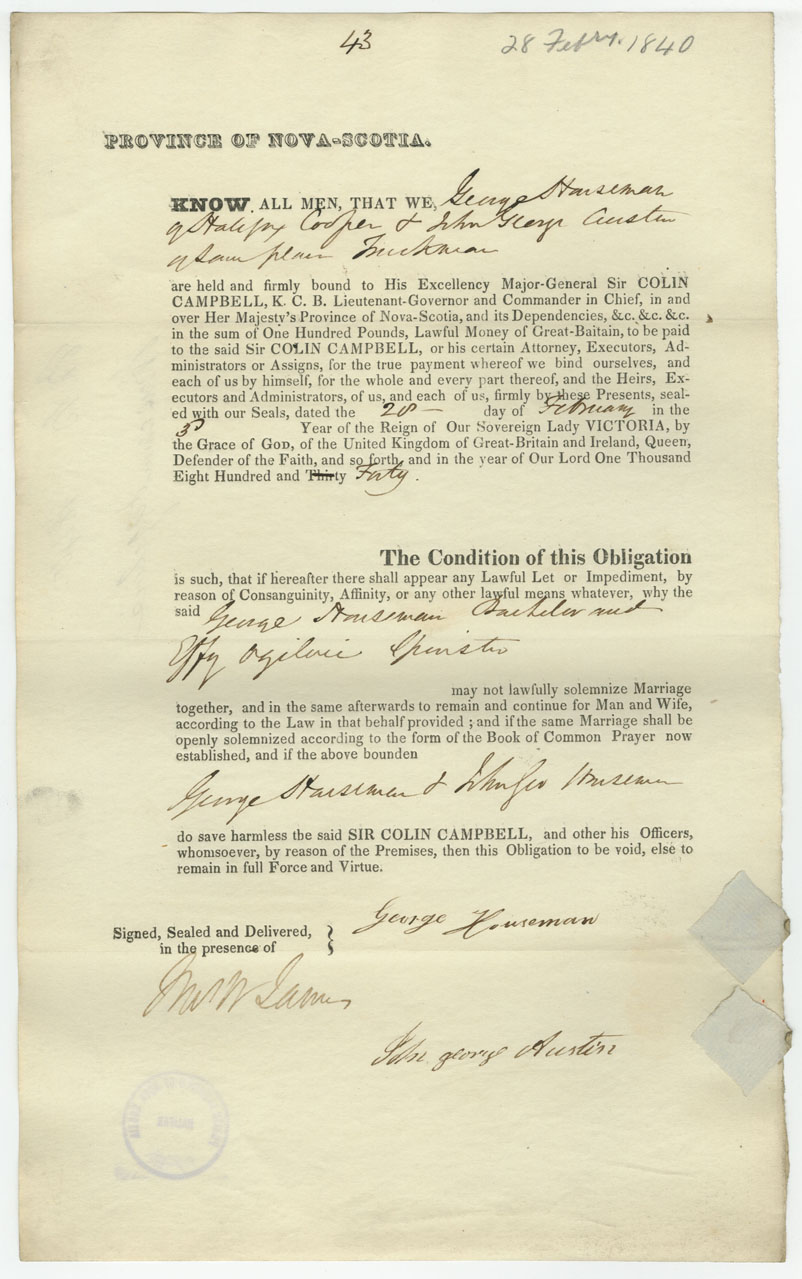 43
28 Febry. 1840
PROVINCE OF NOVA-SCOTIA.
KNOW ALL MEN, THAT WE, George Houseman
of Halifax Cooper & John George Austin
of same place Truckman
are held and firmly bound to His Excellency Major-General Sir COLIN
CAMPBELL, K. C. B. Lieutenant-Governor and Commander in Chief, in and
over Her Majesty's Province of Nova-Scotia, and its Dependencies, &c. &c. &c.
in the sum of One Hundred Pounds, Lawful Money of Great-Baitain, to be paid
to the said Sir COLIN CAMPBELL, or his certain Attorney, Executors, Ad-
ministrators or Assigns, for the true payment whereof we bind ourselves, and
each of us by himself, for the whole and every part thereof, and the Heirs, Ex-
ecutors and Administrators, of us, and each of us, firmly by these Presents, seal-
ed with our Seals, dated the 28 — day of February in the
3d Year of the Reign of Our Sovereign Lady VICTORIA, by
the Grace of GOD, of the United Kingdom of Great-Britain and Ireland, Queen,
Defender of the Faith, and so forth, and in the year of Our Lord One Thousand
Eight Hundred and Thirty Forty.
The Condition of this Obligation
is such, that if hereafter there shall appear any Lawful Let or Impediment, by
reason of Consanguinity, Affinity, or any other lawful means whatever, why the
said George Houseman Bachelor and
Effy Ogilvie Spinster
may not lawfully solemnize Marriage
together, and in the same afterwards to remain and continue for Man and Wife,
according to the Law in that behalf provided ; and if the same Marriage shall be
openly solemnized according to the form of the Book of Common Prayer now
established, and if the above bounden
George Houseman & John Geo Houseman
do save harmless the said SIR COLIN CAMPBELL, and other his Officers,
whomsoever, by reason of the Premises, then this Obligation to be void, else to
remain in full Force and Virtue.
Signed, Sealed and Delivered,
in the presence of
George Houseman
James
John george Austin